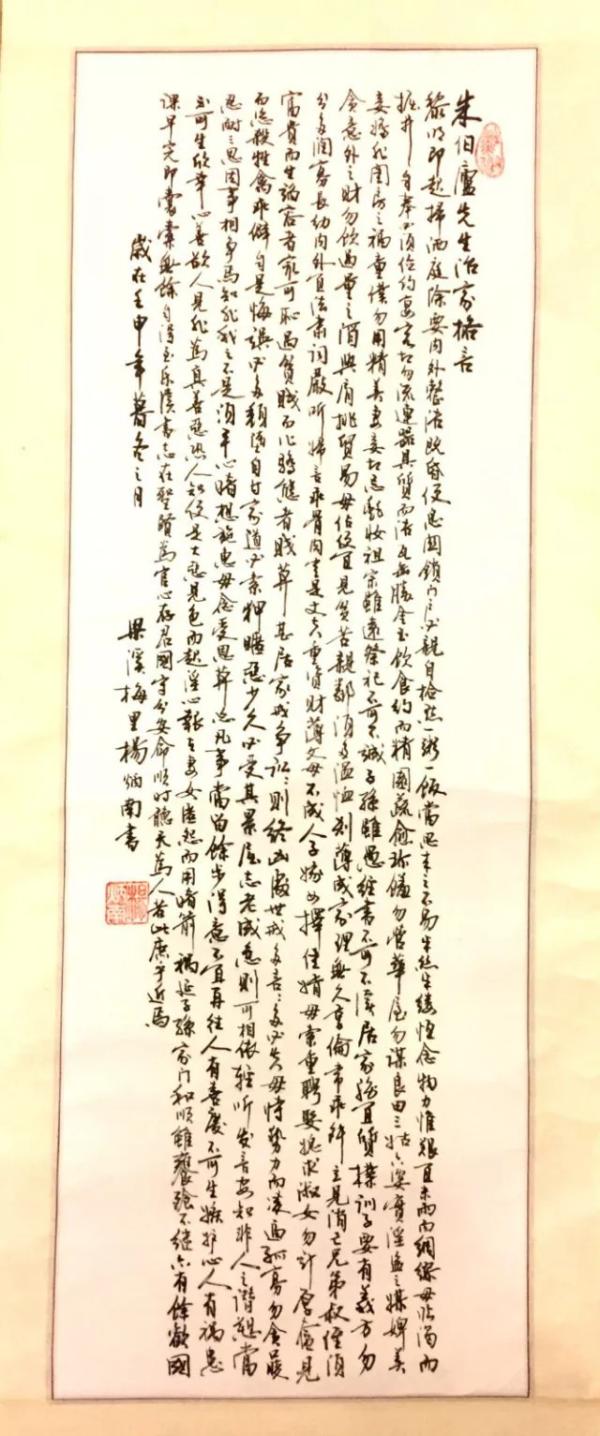 朱伯廬先生治家格言
黎明即起掃洒庭除要內外整潔既昏便息關鎖門戶必親自檢點一粥一飯當思來之不易半絲半縷恆念物力惟艱宜未雨而綢繆毋臨渴而
掘井自奉必須儉約宴客切勿流連器具質而潔瓦缶勝金玉飲食約而精園蔬愈珍饈勿營華屋勿謀良田三姑六婆實淫盜之媒婢美
妾嬌非閨房之福童僕勿用精美妻妾切忌艷妝祖宗雖遠祭祀不可不誠子孫雖愚經書不可不讀居家務宜質樸訓子要有義方勿
貪意外之財勿飲過量之酒與肩挑貿易毋佔便宜見貧苦親鄰須多溫恤刻薄成家理無久享倫常乖舛立見消亡兄弟叔侄須
分多潤寡長幼內外宜法肅詞嚴聽婦言乖骨肉豈是丈夫重資財薄父母不成人子嫁女擇佳婿毋索重聘娶媳求淑女勿計厚奩見
富貴而生諂容者最可恥遇貧賤而作驕態者賤莫甚居家戒爭訟〻則終凶處世戒多言〻多必失毋恃勢力而凌逼孤寡勿貪腹
而恣殺牲禽乖僻自是悔誤必多頹惰自甘家道必索狎暱惡少久必受其累屈志老成急則可相依輕聽發言安知非人之譖愬當
忍耐三思因事相爭焉知非我之不是須平心暗想施惠毋念受恩莫忘凡事當留餘步得意不宜再往人有喜慶不可生嫉妒心人有禍患
不可生欣幸心善欲人見非為真善惡恐人知便是大惡見色而起淫心報在妻女匿怨而用暗箭禍延子孫家門和順雖饔飧不繼亦有餘歡國
課早完即囊橐無餘自得至樂讀書志在聖賢為官心存君國守分安命順時聽天為人若此庶乎近焉
歲在壬申年暮冬之月
梁溪梅里楊炳南書